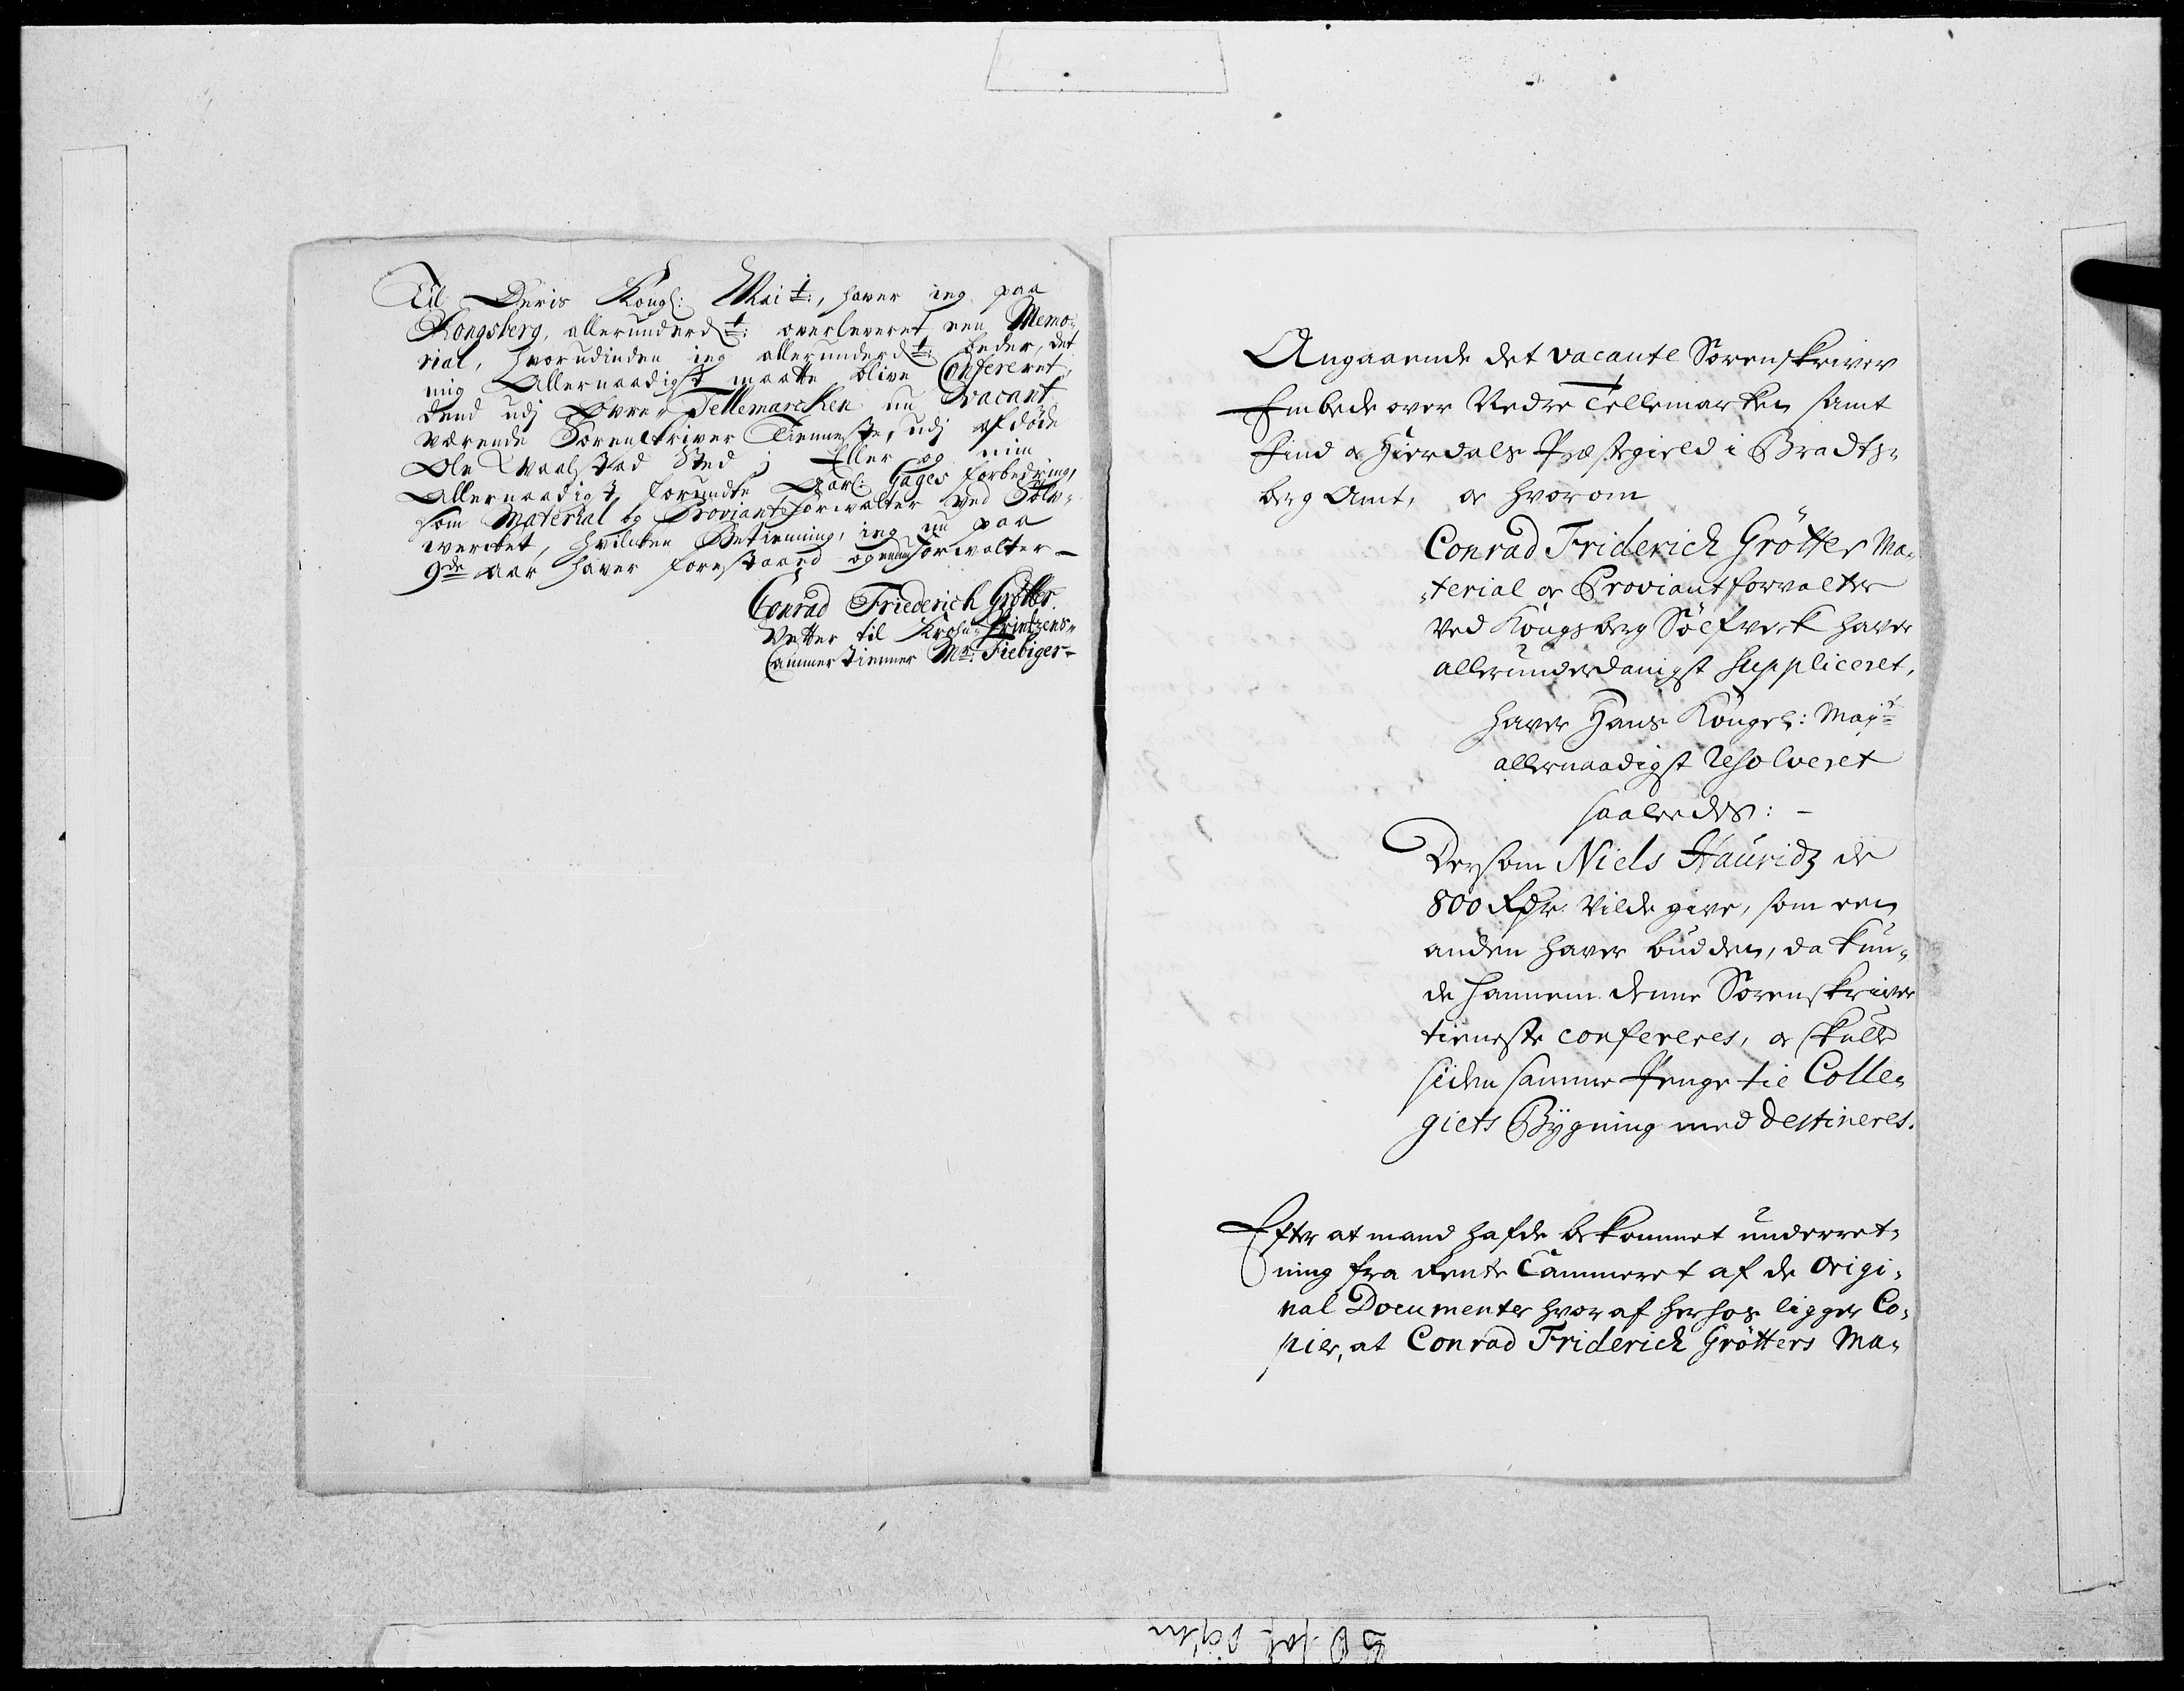 Til Deris Kongl: Mai:t:, haver ieg paa
Kongsberg, allerunderd:t: overleveret een Memo-
rial, hvorudinden ieg allerunderd:t: beder, det
mig Allernaadigst maatte blive Confereret,
dend udj Øvre Tellemarcken nu vacant
værende Sorenskriver Tienneste, udj afdøde
Ole Sted; Eller og min
Allernaadigst forundte Aarl: Gages forbedring,
som Material og Proviantforvalter ved Sølv-
wercket, hvilcken Betienning, ieg nu paa
9de aar haver forestaaed og forvalter -
Conrad Friederich Grøtter.
Vetter til Krohn-Printzens-
Cammertienner Mr: Fiebiger-
Angaaende det vacante Sorenskriver
Embede over Nedre Tellemarken samt
Hierdals Præstegield i Bradts-
berg Amt, og hvorom
Conrad Friderich Grötter Ma-
terial og Proviantforvalter
ved Kongsberg Sölfverk haver
allerunderdanigst suppliceret,
haver Hans Kongel: May:t
allernaadigst resolveret
saaledes: -
Dersom Niels Hauridz de
800 Rdr. vilde give, som een
anden haver budden, da kun-
de hannem denne Sorenskriver
tieneste confereres, og skulle
siden samme Penge til Colle-
giets Bÿgning med destineres.
Efter at mand hafde bekommet underret-
ning fra Rente Cammeret af de Origi-
nal Documenter hvoraf herhos ligger Co-
pier, at Conrad Friderich Grötters Ma-